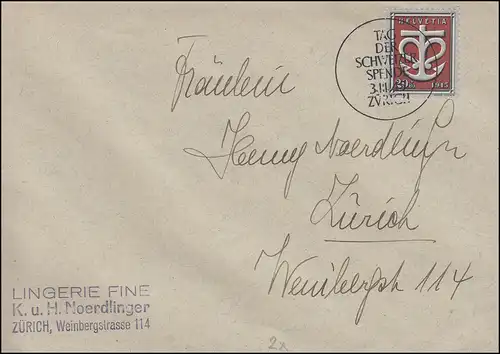 HELVETIA
TAG
DER
SCHWEIZER
SPENDE
ZÜRICH
1945
Fräulein
Henny Noerdlinger
Zürich
Weinbergst 114
LINGERIE FINE
K. u. H. Noerdlinger
ZÜRICH, Weinbergstrasse 114
2x